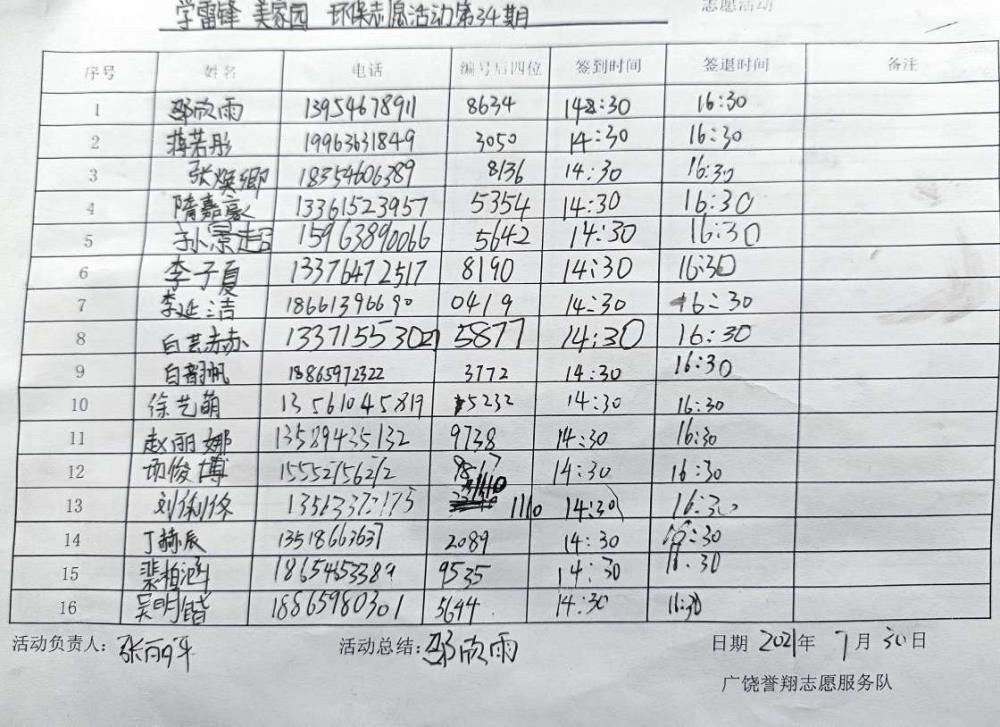 学雷锋 美家园 环保志愿活动第34期 志愿活动
序号 姓名 电话 编号后四位 签到时间 签退时间 备注
1 邵欣雨 13954678911 8634 14:30 16:30
2 蒋若彤 19963631849 3050 14:30 16:30
3 张焕卿 18354606389 8136 14:30 16:30
4 隋嘉豪 13361523957 5354 14:30 16:30
5 孙景超 15963890066 5642 14:30 16:30
6 李子夏 13376472517 8190 14:30 16:30
7 李延洁 18661396690 0419 14:30 16:30
8 白芸赫 5877 14:30 16:30
9 白韵帆 18865972322 3772 14:30 16:30
10 徐艺萌 13561045819 5232 14:30 16:30
11 赵丽娜 13589435132 9738 14:30 16:30
12 俊博 15552756272 14:30 16:30
13 刘 1110 14:30 16:30
14 丁赫辰 13518663637 2089 14:30 16:30
15 柏涵 18654653389 9535 14:30 16:30
16 吴明锴 18865980301 5644 14:30 16:30
活动负责人：张丽萍 活动总结：邵欣雨 日期 2021年 7月 30日
广饶誉翔志愿服务队